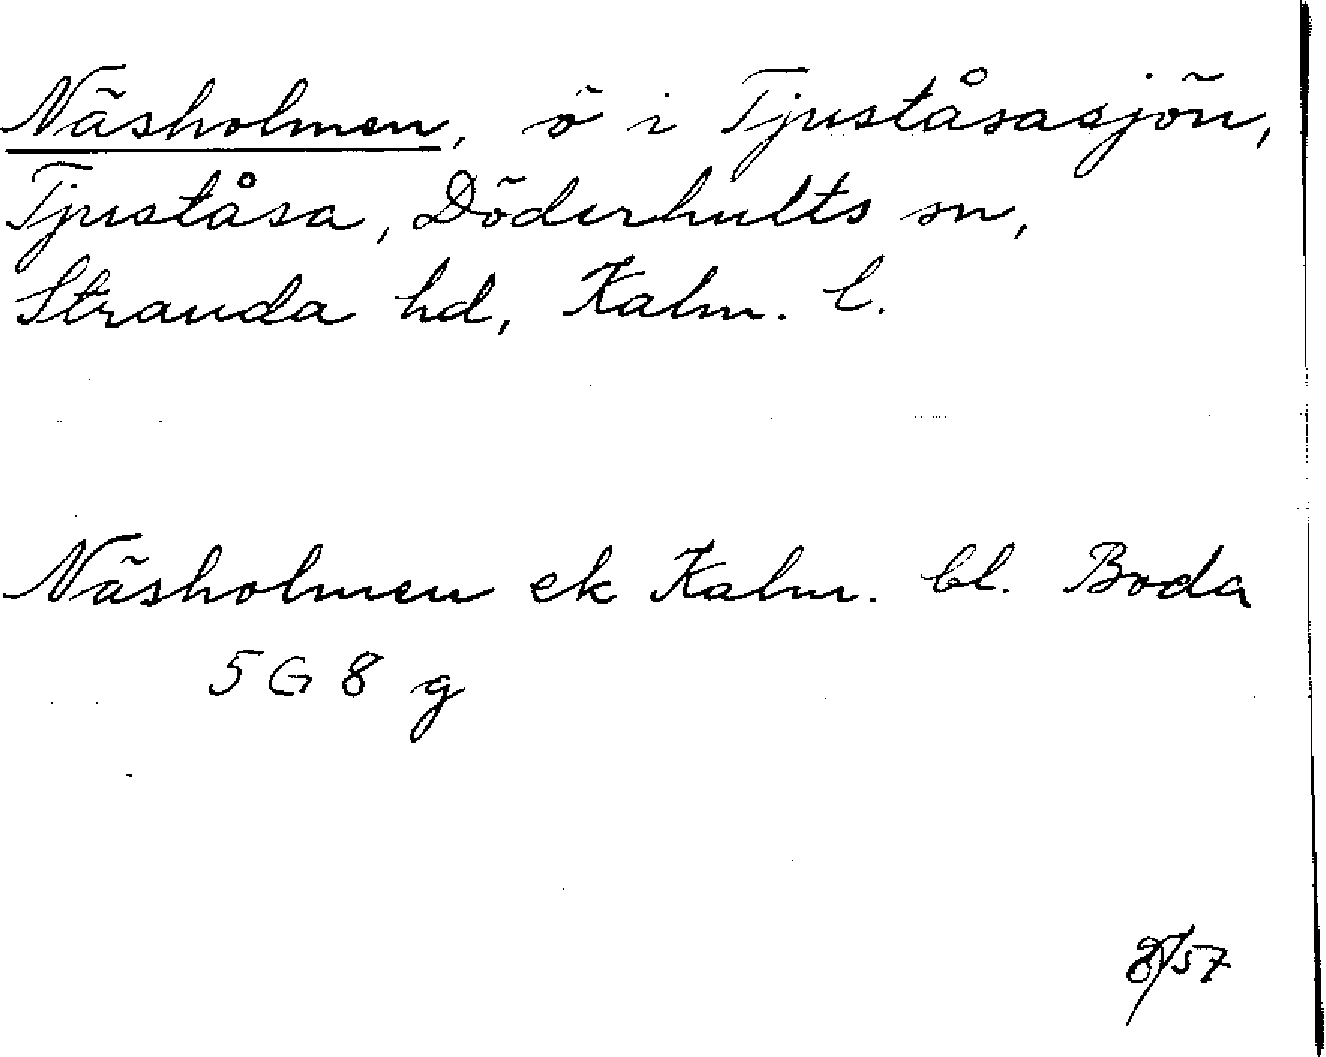 Näsholmen, ö i Tjuståsasjön,
Tjuståsa, Döderhults sn,
Stranda hd, Kalm. l.
Näsholmen ek Kalm. bl. Boda
5 G 8 g